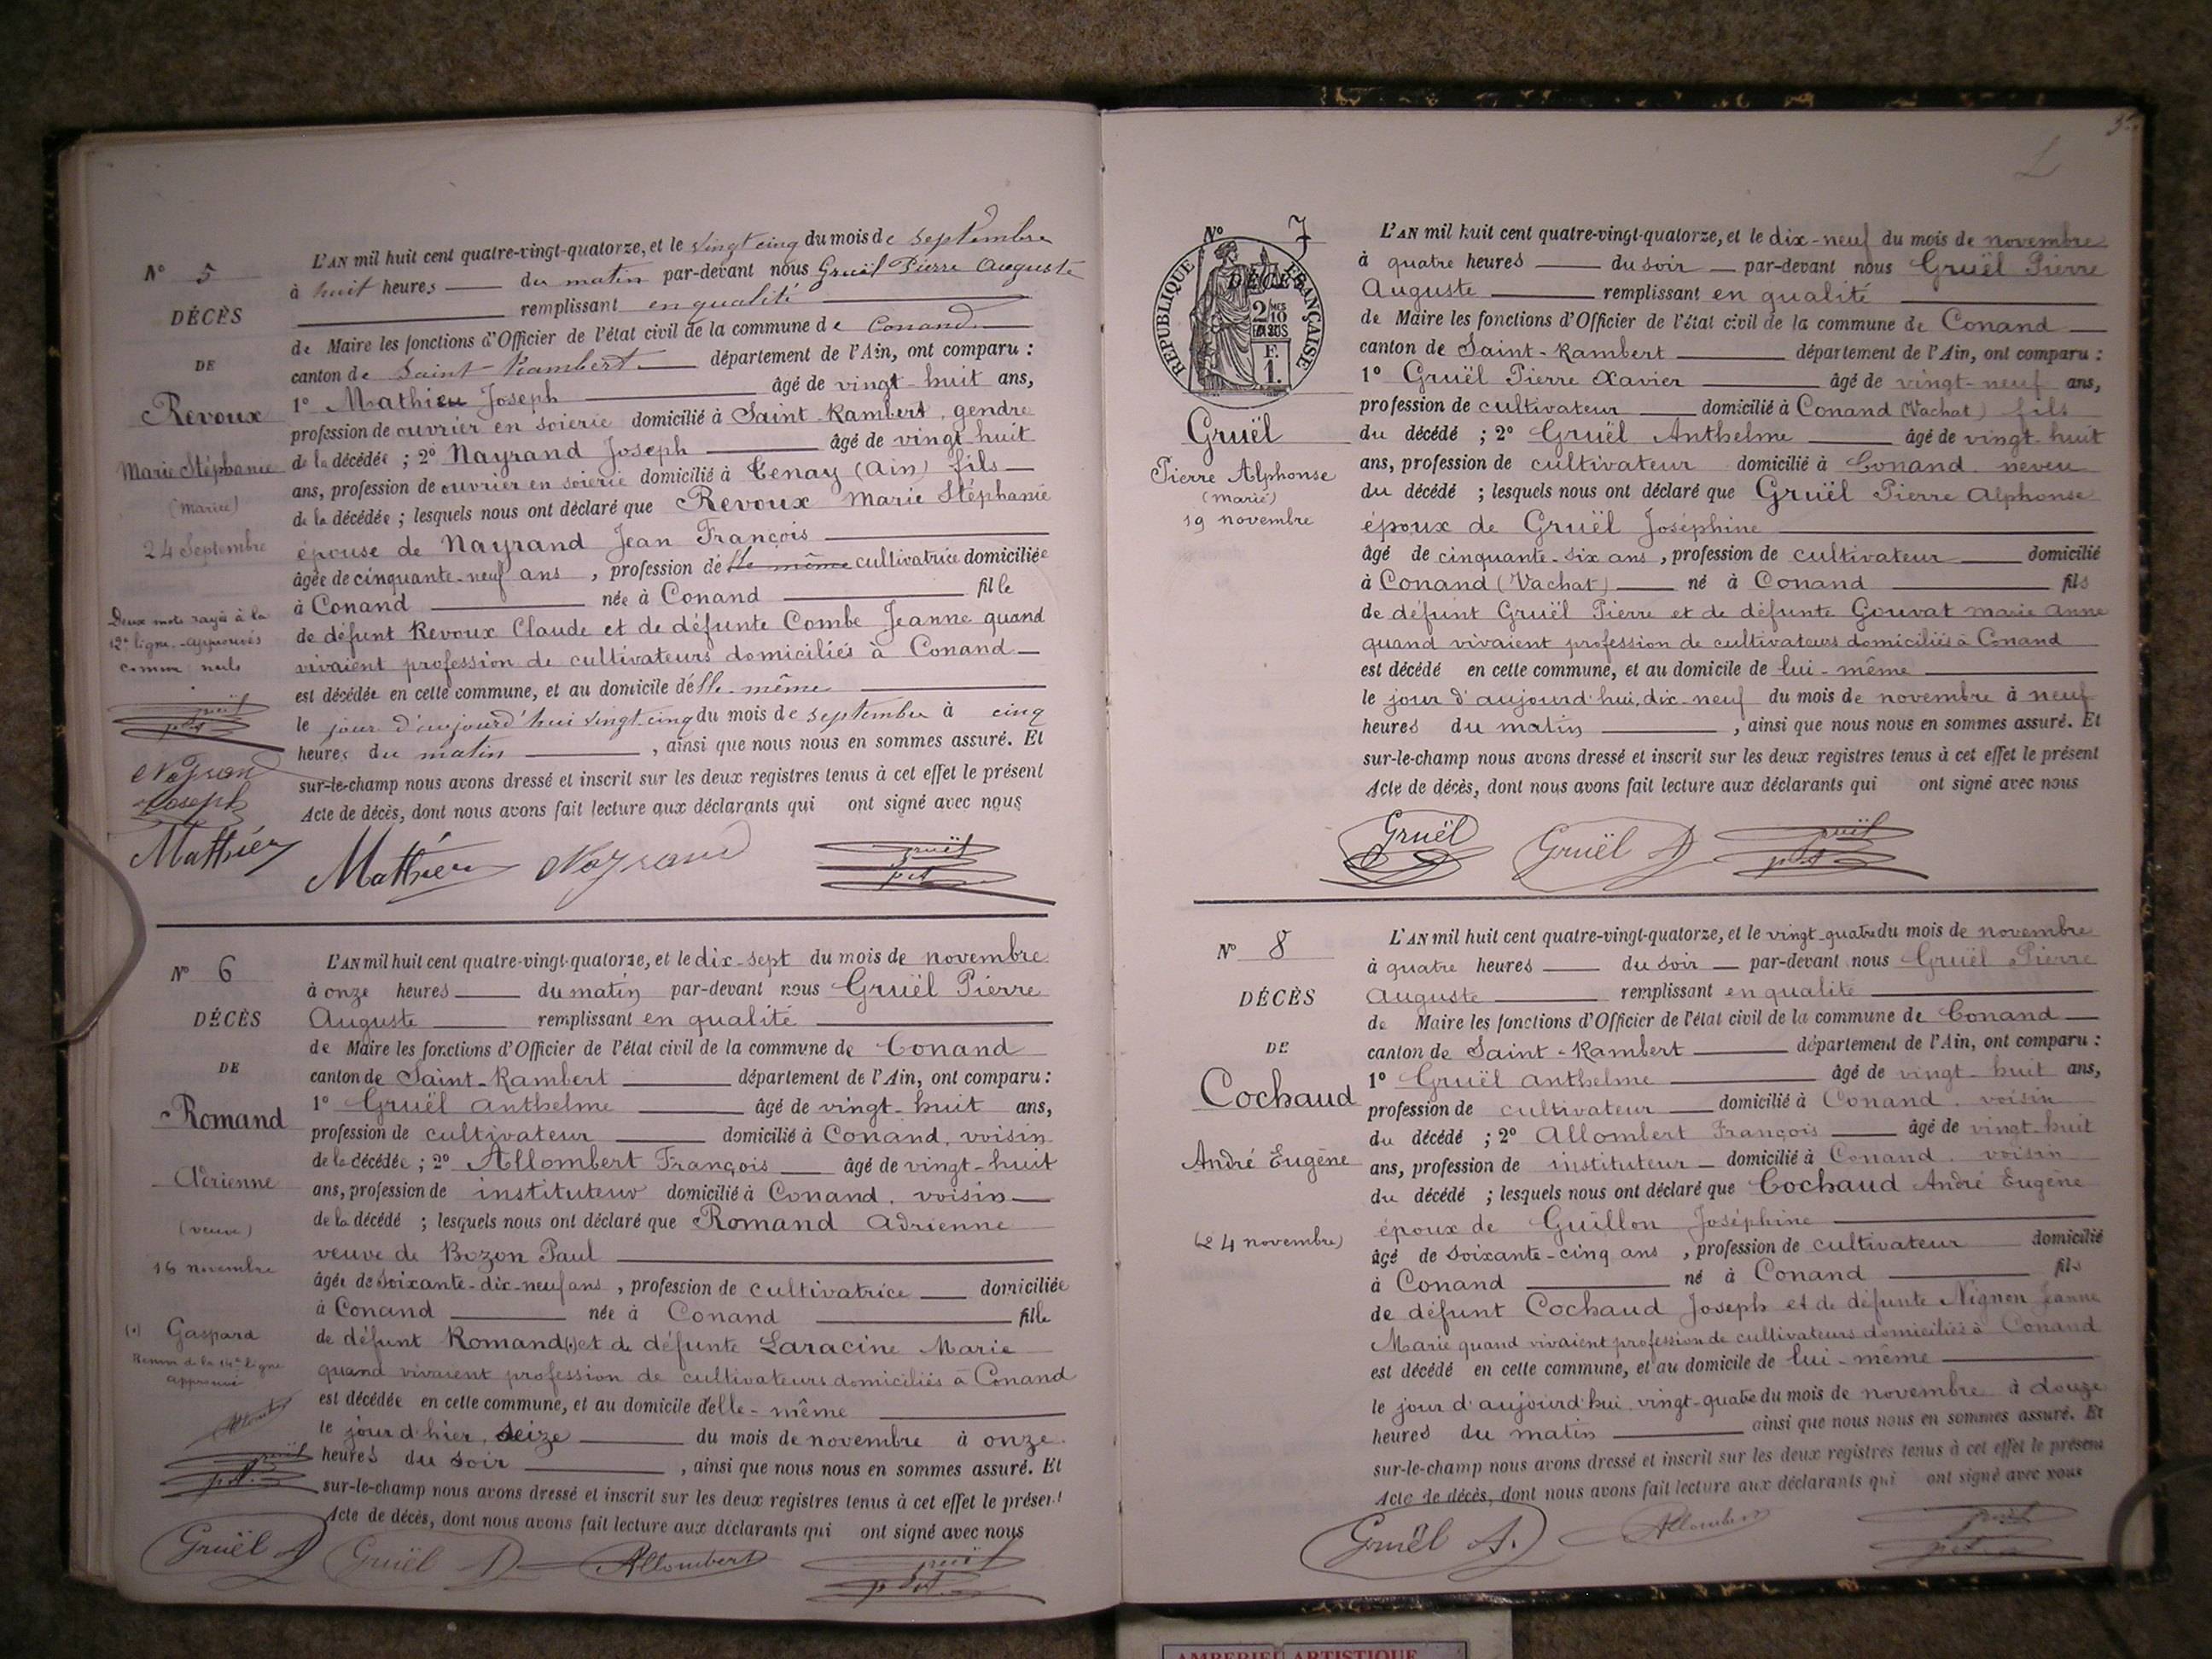 N° 5
DÉCÈS
DE
Revoux
Marie Stéphanie
(mariée)
24 Septembre
Deux mots rayés à la
12e ligne. approuvés
comme nuls
Nayrand
Joseph
Mathieu
L'AN mil huit cent quatre-vingt-quatorze, et le vingt cinq du mois de septembre
à huit heures du matin par-devant nous Gruël Pierre Auguste
remplissant en qualité
de Maire les fonctions d'Officier de l'état civil de la commune de Conand
canton de Saint-Rambert département de l'Ain, ont comparu :
1° Mathieu Joseph âgé de vingt-huit ans,
profession de ouvrier en soierie domicilié à Saint-Rambert, gendre
de la décédée ; 2° Nayrand Joseph âgé de vingt huit
ans, profession de ouvrier en soierie domicilié à Tenay (Ain) fils
de la décédée ; lesquels nous ont déclaré que Revoux Marie Stéphanie
épouse de Nayrand Jean François
âgée de cinquante-neuf ans, profession d'elle même cultivatrice domiciliée
à Conand née à Conand fille
de défunt Revoux Claude et de défunte Combe Jeanne quand
vivaient profession de cultivateurs domiciliés à Conand
est décédée en cette commune, et au domicile d'elle-même
le jour d'aujourd'hui vingt cinq du mois de septembre à cinq
heures du matin, ainsi que nous nous en sommes assuré. Et
sur-le-champ nous avons dressé et inscrit sur les deux registres tenus à cet effet le présent
Acte de décès, dont nous avons fait lecture aux déclarants qui ont signé avec nous
Mathieu Nayrand Gruël
N° 6
DÉCÈS
DE
Romand
Adrienne
(veuve)
16 novembre
(.) Gaspard
Renvoi de la 14e ligne
approuvé
Allombert
Gruël A
L'AN mil huit cent quatre-vingt-quatorze, et le dix-sept du mois de novembre
à onze heures du matin par-devant nous Gruël Pierre
Auguste remplissant en qualité
de Maire les fonctions d'Officier de l'état civil de la commune de Conand
canton de Saint-Rambert département de l'Ain, ont comparu :
1° Gruël Anthelme âgé de vingt-huit ans,
profession de cultivateur domicilié à Conand, voisin
de la décédée ; 2° Allombert François âgé de vingt-huit
ans, profession de instituteur domicilié à Conand. voisin
de la décédé ; lesquels nous ont déclaré que Romand Adrienne
veuve de Bozon Paul
âgée de soixante-dix-neuf ans, profession de cultivatrice domiciliée
à Conand née à Conand fille
de défunt Romand (.) et de défunte Laracine Marie
quand vivaient profession de cultivateurs domiciliés à Conand
est décédée en cette commune, et au domicile d'elle-même
le jour d'hier, seize du mois de novembre à onze
heures du soir, ainsi que nous nous en sommes assuré. Et
sur-le-champ nous avons dressé et inscrit sur les deux registres tenus à cet effet le présent
Acte de décès, dont nous avons fait lecture aux déclarants qui ont signé avec nous
Gruël A Allombert Gruël
N° 7
DÉCÈS
RÉPUBLIQUE FRANÇAISE
2/10
EN SUS
F.
1.
Gruël
Pierre Alphonse
(marié)
19 novembre
L'AN mil huit cent quatre-vingt-quatorze, et le dix-neuf du mois de novembre
à quatre heures du soir par-devant nous Gruël Pierre
Auguste remplissant en qualité
de Maire les fonctions d'Officier de l'état civil de la commune de Conand
canton de Saint-Rambert département de l'Ain, ont comparu :
1° Gruël Pierre Xavier âgé de vingt-neuf ans,
profession de cultivateur domicilié à Conand (Vachat) fils
du décédé ; 2° Gruël Anthelme âgé de vingt-huit
ans, profession de cultivateur domicilié à Conand. neveu
du décédé ; lesquels nous ont déclaré que Gruël Pierre Alphonse
époux de Gruël Joséphine
âgé de cinquante-six ans, profession de cultivateur domicilié
à Conand (Vachat) né à Conand fils
de défunt Gruël Pierre et de défunte Gouvat Marie Anne
quand vivaient profession de cultivateurs domiciliés à Conand
est décédé en cette commune, et au domicile de lui-même
le jour d'aujourd'hui, dix-neuf du mois de novembre à neuf
heures du matin, ainsi que nous nous en sommes assuré. Et
sur-le-champ nous avons dressé et inscrit sur les deux registres tenus à cet effet le présent
Acte de décès, dont nous avons fait lecture aux déclarants qui ont signé avec nous
Gruël Gruël A Gruël
N° 8
DÉCÈS
DE
Cochaud
André Eugène
(24 novembre)
L'AN mil huit cent quatre-vingt-quatorze, et le vingt-quatre du mois de novembre
à quatre heures du soir par-devant nous Gruël Pierre
Auguste remplissant en qualité
de Maire les fonctions d'Officier de l'état civil de la commune de Conand
canton de Saint-Rambert département de l'Ain, ont comparu :
1° Gruël Anthelme âgé de vingt-huit ans,
profession de cultivateur domicilié à Conand. voisin
du décédé ; 2° Allombert François âgé de vingt-huit
ans, profession de instituteur domicilié à Conand. voisin
du décédé ; lesquels nous ont déclaré que Cochaud André Eugène
époux de Guillon Joséphine
âgé de soixante-cinq ans, profession de cultivateur domicilié
à Conand né à Conand fils
de défunt Cochaud Joseph et de défunte Nignon Jeanne
Marie quand vivaient profession de cultivateurs domiciliés à Conand
est décédé en cette commune, et au domicile de lui-même
le jour d'aujourd'hui. vingt-quatre du mois de novembre à douze
heures du matin ainsi que nous nous en sommes assuré. Et
sur-le-champ nous avons dressé et inscrit sur les deux registres tenus à cet effet le présent
Acte de décès, dont nous avons fait lecture aux déclarants qui ont signé avec nous
Gruël A. Allombert Gruël
AMBERIEU ARTISTIQUE